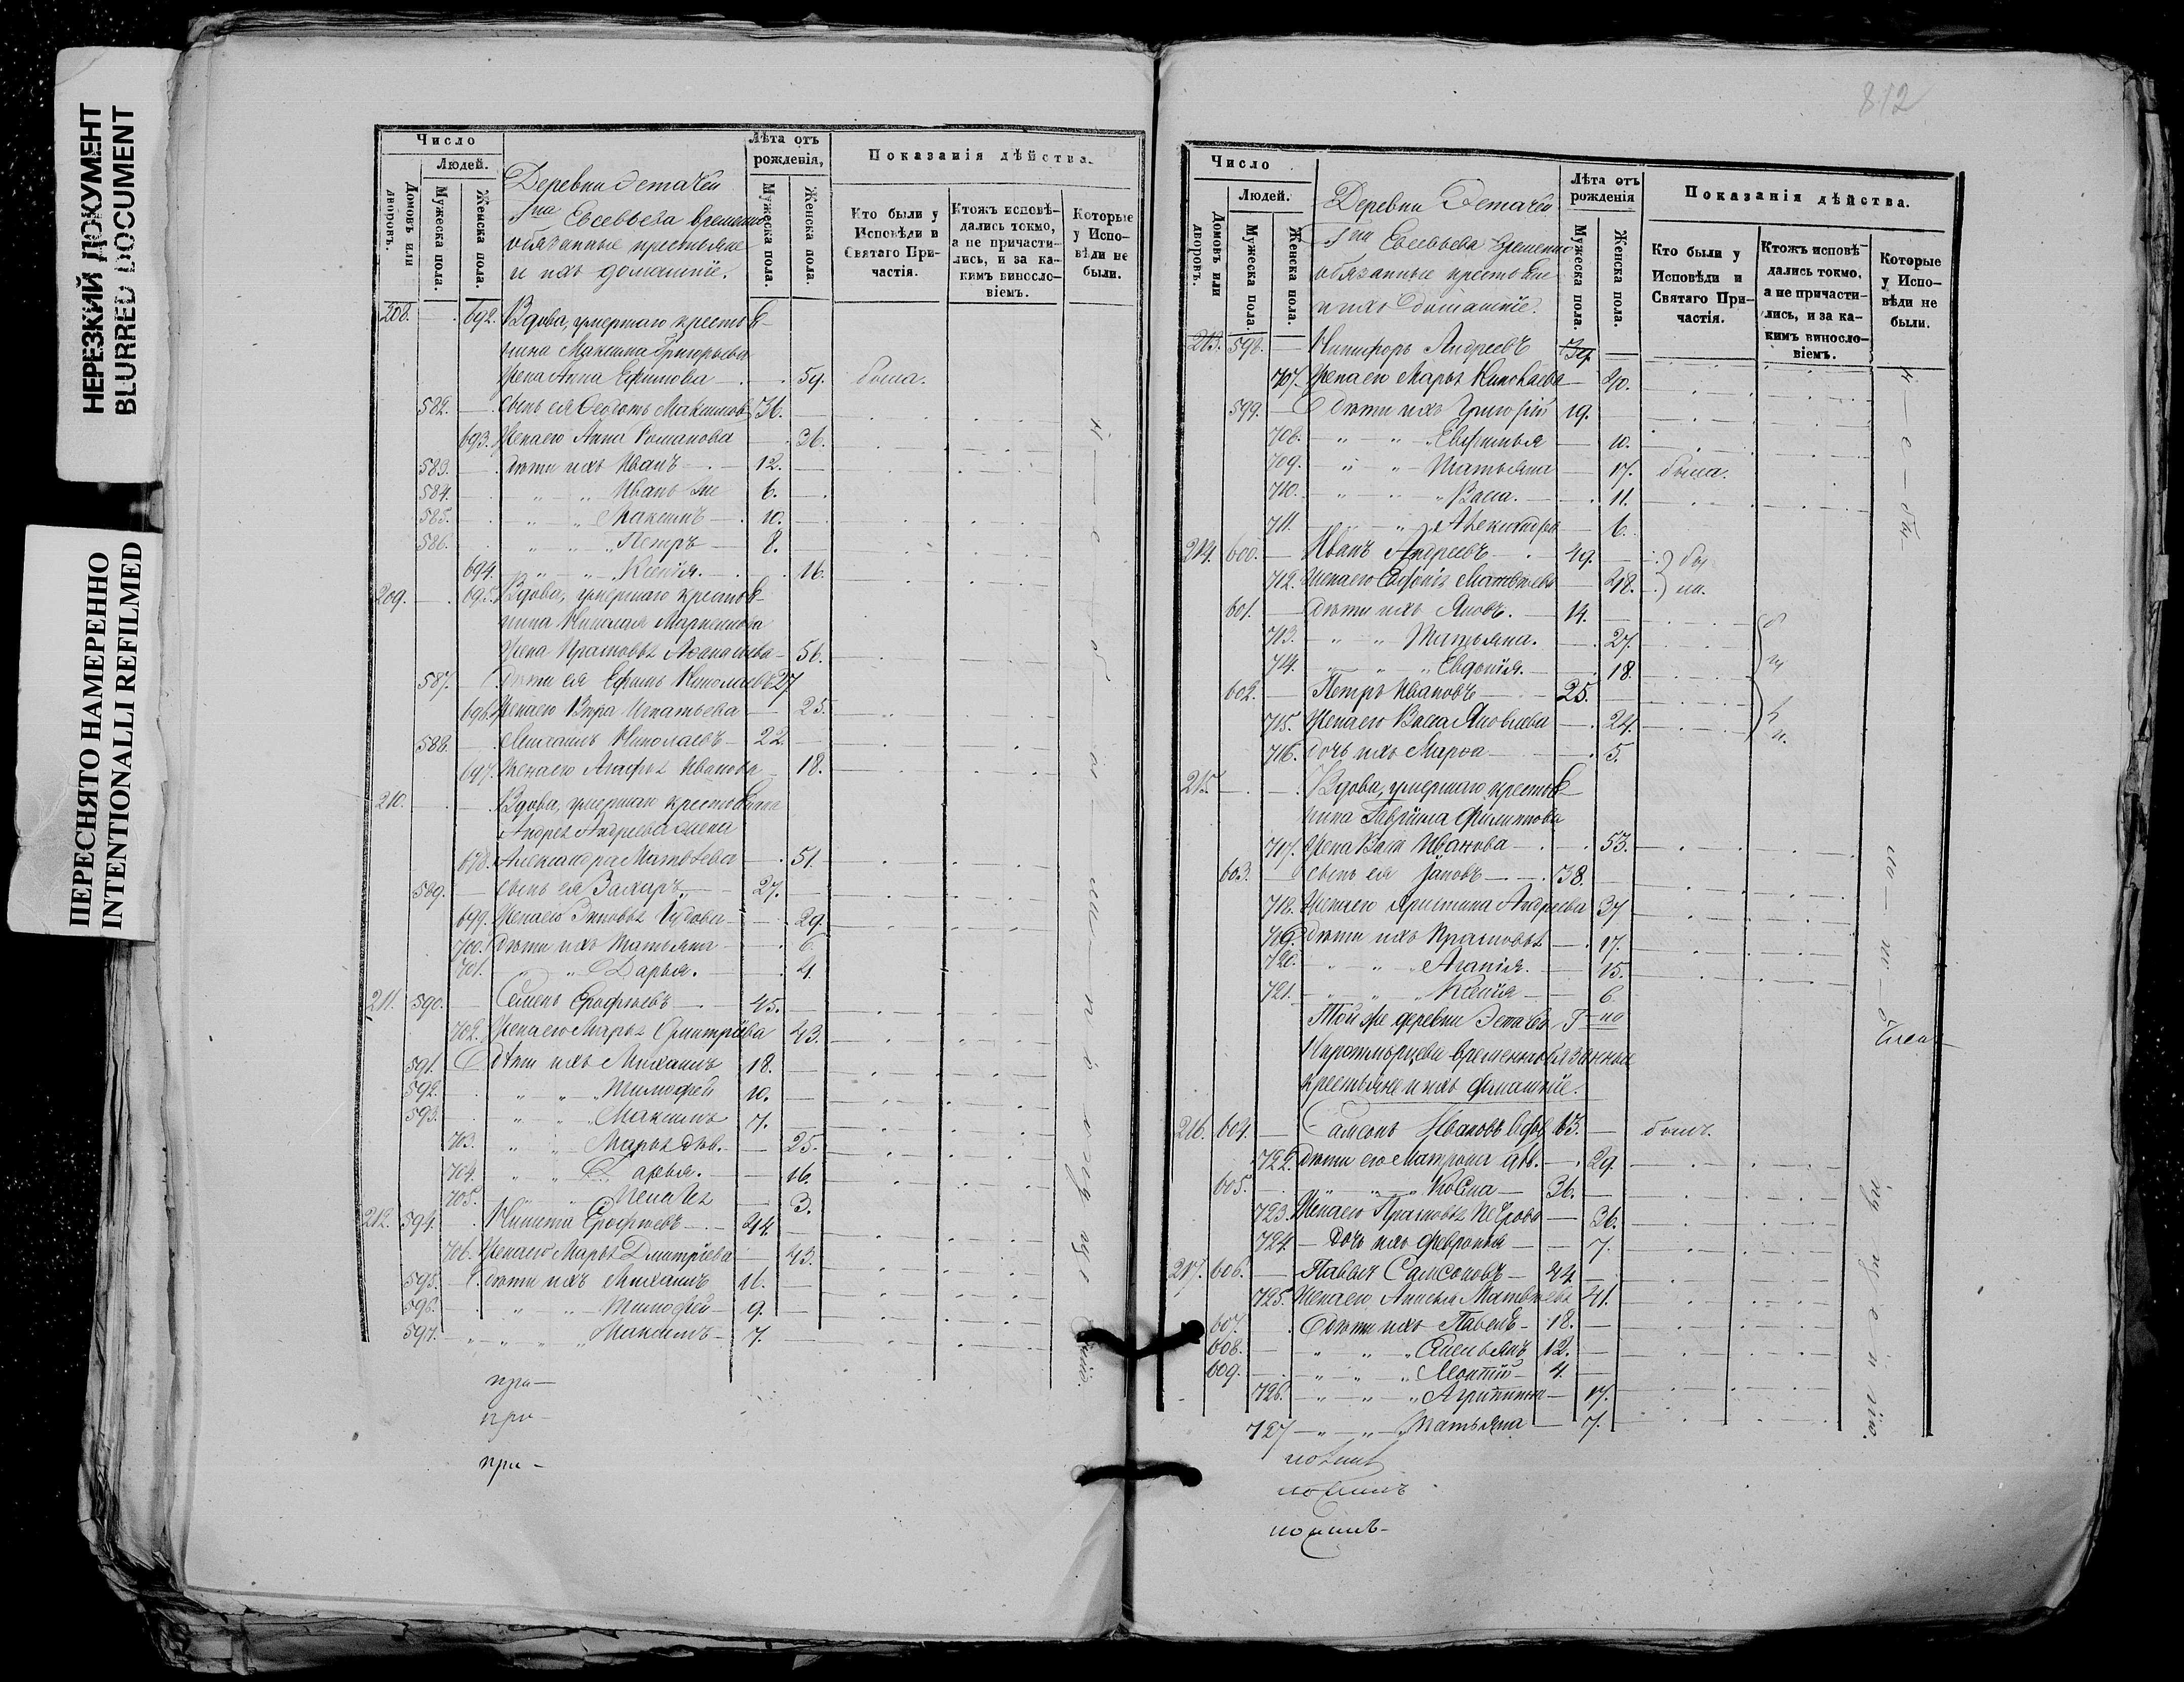 НЕРЕЗКИЙ ДОКУМЕНТ
BLURRED DOCUMENT
ПЕРЕСНЯТО НАМЕРЕННО
INTENTIONALLI REFILMED
Число
Людей.
Домовъ или дворовъ.
Мужеска пола.
Женска пола.
Деревни Эстачей
Гна Евсевьева временно
обязанные крестьяне
и ихъ домашніе.
Лѣта отъ рожденія,
Мужеска пола.
Женска пола.
Показанія дѣйства.
Кто были у Исповѣди и Святаго Причастія.
Ктожъ исповѣдались токмо, а не причастились, и за какимъ винословіемъ.
Которые у Исповѣди не были.
208. 692. Вдова, умершаго крестья-
нина Максима Григорьева
жена Анна Ефимова 59. была.
582. сынъ ея Ѳедотъ Максимовъ 36.
693. Жена его Анна Романова 36.
583. дѣти ихъ Иванъ 12.
584. " " Иванъ же 6.
585. " " Максимъ 10.
586. " " Петръ 8.
694. " " Ксенія. 16.
209. 695. Вдова, умершаго крестья-
нина Николая
Жена Аѳанасьева 56.
587. Дѣти ея Ефимъ Николаевъ 27
696. Жена его Вѣра Игнатьева 25.
588. Николаевъ 22
697. Жена его Агафья Иванова 18.
210. Вдова, умершаго крестьянина
Андрея Андреева жена
698. Александра Матвѣева 51.
589. сынъ ея Захаръ 27.
699. Жена его 29.
700. Дѣти ихъ Татьяна 6.
701. " Дарья. 4.
211. 590. Семенъ Ерофѣевъ 45.
702. Жена его Марья Дмитріева 43.
591. Дѣти ихъ Михаилъ 18.
592. " " Тимофей 10.
593. " " Максимъ 7.
703. " " Марья дѣв. 25.
704. " " Дарья. 16.
705. " " 3.
212. 594. Никита Ерофѣевъ 44.
706. Жена его Марья Дмитріева 43.
595. Дѣти ихъ Михаилъ 11.
596. " " Тимофей 9.
597. " " Максимъ 7.
при-
при-
при-
812
Число
Людей.
Домовъ или дворовъ.
Мужеска пола.
Женска пола.
Деревни Эстачей
Гна Евсевьева временно
обязанные крестьяне
и ихъ домашніе.
Лѣта отъ рожденія
Мужеска пола.
Женска пола.
Показанія дѣйства.
Кто были у Исповѣди и Святаго Причастія.
Ктожъ исповѣдались токмо, а не причастились, и за какимъ винословіемъ.
Которые у Исповѣди не были.
213. 598. Никифоръ Андреевъ 39.
707. Жена его Марья Николаева 40.
599. Дѣти ихъ Григорій 19.
708. " " Евфимья 10.
709. " " Татьяна 17. была.
710. " " Васса. 11.
711. " Александра 6.
214. 600. Иванъ Андреевъ 49. бы
712. Жена его Матвѣева 48. ла.
601. Дѣти ихъ Яковъ. 14.
713. " " Татьяна. 27.
714. " " Евдокія. 18.
602. Петръ Ивановъ 25.
715. Жена его Васса Яковлева 24.
716. дочь ихъ Марѳа 5.
215. Вдова, умершаго крестья-
нина Гавріила Филиппова
717. Жена Васса Иванова 53.
603. сынъ ея Яковъ 38.
718. Жена его Христина Андреева 37
719. Дѣти ихъ 17.
720. " " Агапія. 15.
721. " " Ксенія 6.
Той же деревни Эстачей Г-на
временнообязанные
крестьяне и ихъ домашніе.
216. 604. Самсонъ Ивановъ вдов. 65. былъ.
722. Дѣти его Матрона дѣв. 29.
605. " " Косма 36.
723. Жена его Петрова 36.
724. Дочь ихъ Февронья 7.
217. 606. Павелъ Самсоновъ 44.
725. Жена его Анисья Матвѣева 41.
607. Дѣти ихъ Павелъ 18.
608. " " Емельянъ 12.
609. " " 4.
726. " " Агрипина 17.
727 " " Татьяна 7.